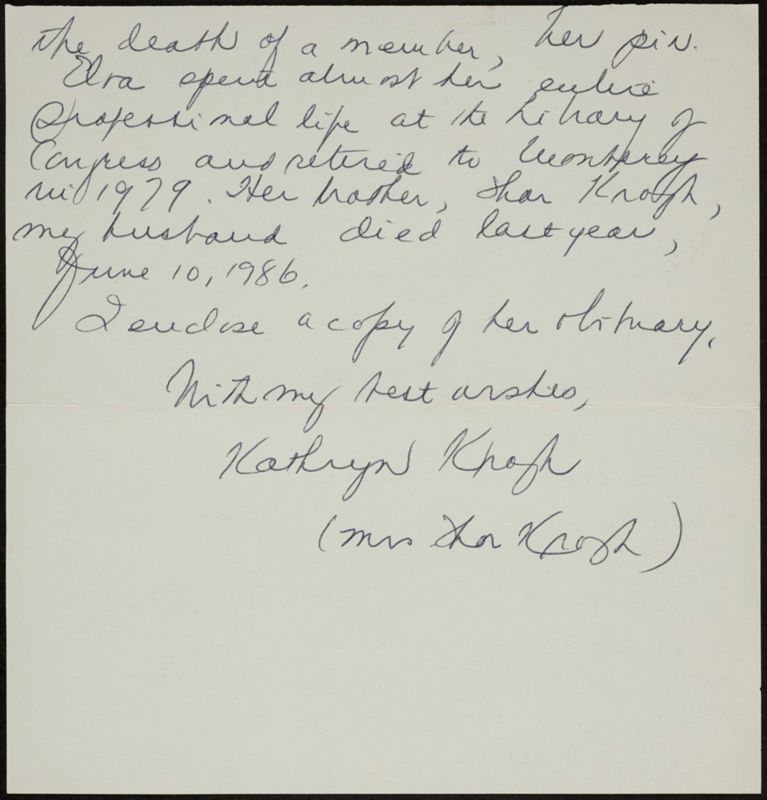 the death of a member, her pin.
Elva spend almost her entire
professional life at the Library of
Congress and retired to Monterey
in 1979. Her brother, Thor Krogh,
my husband died last year,
June 10, 1986.
I enclose a copy of her obituary.
With my best wishes,
Kathryn Krogh
(Mrs Thor Krogh)